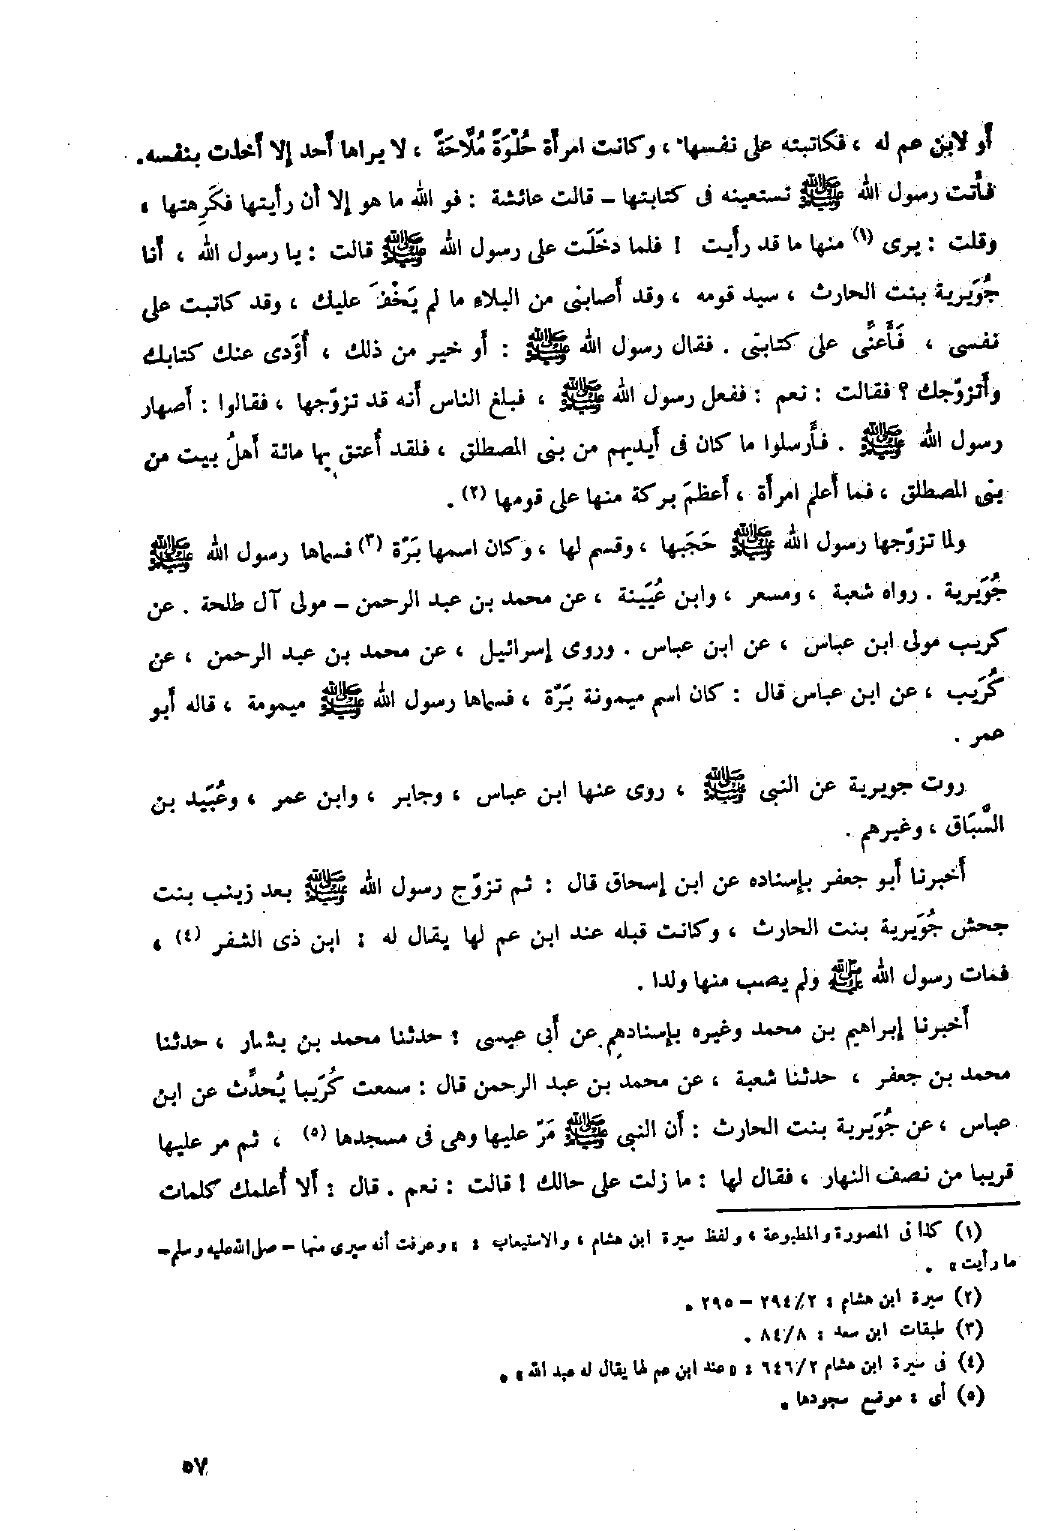 أو لابن عم له ، فكاتبته على نفسها ، وكانت امرأة حُلْوَةً مُلَّاحَةً ، لا يراها أحد إلا أخذت بنفسه .
فأتت رسول الله ﷺ تستعينه فى كتابتها – قالت عائشة : فو الله ما هو إلا أن رأيتها فكَرِهتها ،
وقلت : يرى (١) منها ما قد رأيت ! فلما دخَلَت على رسول الله ﷺ قالت : يا رسول الله ، أنا
جُوَيرية بنت الحارث ، سيد قومه ، وقد أصابنى من البلاء ما لم يَخْفَ عليك ، وقد كاتبت على
نفسى ، فَأَعنِّى على كتابتى . فقال رسول الله ﷺ : أو خير من ذلك ، أُؤَدى عنك كتابك
وأتزوّجك ؟ فقالت : نعم : ففعل رسول الله ﷺ ، فبلغ الناس أنه قد تزوّجها ، فقالوا : أصهار
رسول الله ﷺ . فأرسلوا ما كان فى أيديهم من بنى المصطلق ، فلقد أعتق بها مائة أهلُ بيت من
بنى المصطلق ، فما أعلم امرأة ، أعظمَ بركة منها على قومها (٢) .
ولما تزوّجها رسول الله ﷺ حَجَبها ، وقسم لها ، وكان اسمها بَرّة (٣) فسماها رسول الله ﷺ
جُوَيرية . رواه شعبة ، ومسعر ، وابن عُيَينة ، عن محمد بن عبد الرحمن – مولى آل طلحة . عن
كريب مولى ابن عباس ، عن ابن عباس . وروى إسرائيل ، عن محمد بن عبد الرحمن ، عن
كُرَيب ، عن ابن عباس قال : كان اسم ميمونة بَرّة ، فسماها رسول الله ﷺ ميمومة ، قاله أبو
عمر .
روت جويرية عن النبى ﷺ ، روى عنها ابن عباس ، وجابر ، وابن عمر ، وعُبَيد بن
السَّبّاق ، وغيرهم .
أخبرنا أبو جعفر بإسناده عن ابن إسحاق قال : ثم تزوّج رسول الله ﷺ بعد زينب بنت
جحش جُوَيرية بنت الحارث ، وكانت قبله عند ابن عم لها يقال له : ابن ذى الشفر (٤) ،
فمات رسول الله ﷺ ولم يصب منها ولدا .
أخبرنا إبراهيم بن محمد وغيره بإسنادهم عن أبى عيسى : حدثنا محمد بن بشار ، حدثنا
محمد بن جعفر ، حدثنا شعبة ، عن محمد بن عبد الرحمن قال : سمعت كُرَيبا يُحدِّث عن ابن
عباس ، عن جُوَيرية بنت الحارث : أن النبى ﷺ مَرّ عليها وهى فى مسجدها (٥) ، ثم مر عليها
قريبا من نصف النهار ، فقال لها : ما زلت على حالك ! قالت : نعم . قال : ألا أعلمك كلمات
(١) كذا فى المصورة والمطبوعة ، ولفظ سيرة ابن هشام ، والاستيعاب : « وعرفت أنه سيرى منها – صلى الله عليه وسلم –
ما رأيت » .
(٢) سيرة ابن هشام : ٢٩٤/٢ – ٢٩٥ .
(٣) طبقات ابن سعد : ٨٤/٨ .
(٤) فى سيرة ابن هشام ٦٤٦/٢ : « عند ابن عم لها يقال له عبد الله » .
(٥) أى : موضع سجودها .
٥٧